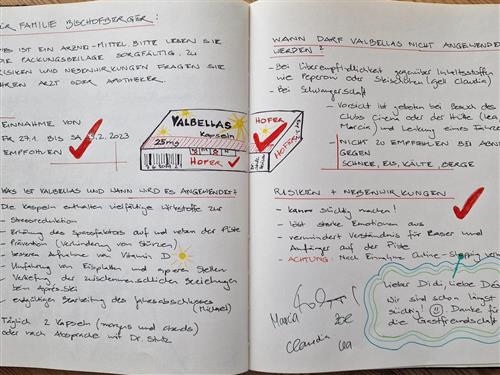 FÜR FAMILIE BISCHOFBERGER:
DIES IST EIN ARZNEI-MITTEL. BITTE LESEN SIE
DIE PACKUNGSBEILAGE SORGFÄLTIG. ZU
RISIKEN UND NEBENWIRKUNGEN FRAGEN SIE
IHREN ARZT ODER APOTHEKER.
EINNAHME VON
FR 27.1. BIS SA 2.2023
EMPFOHLEN
VALBELLAS
Kapseln
25mg
HOFER
HOFER
WAS IST VALBELLAS UND WANN WIRD ES ANGEWENDET
Die Kapseln enthalten vielfältige Wirkstoffe zur
- Stressreduktion
- Erhöhung des Spassfaktors auf und neben der Piste
- Prävention (Verhinderung von Stürzen)
- besseren Aufnahme von Vitamin D
- Umfahrung von Eisplatten und aperen Stellen
- Vertiefung der zwischenmenschlichen Beziehungen
beim Après-Ski
- endgültigen Bearbeitung des Jahresabschlusses
(Michael)
Täglich 2 Kapseln (morgens und abends)
oder nach Absprache mit Dr. Stutz
WANN DARF VALBELLAS NICHT ANGEWENDET
WERDEN?
- Bei Überempfindlichkeit gegenüber Inhaltsstoffen
wie Peperoni oder (gell Claudia)
- Bei Schwangerschaft
- Vorsicht ist geboten bei Besuch des
Clubs Cinema oder der Hütte (Lea,
Marcia) und Lenkung eines
- NICHT ZU EMPFEHLEN BEI
GEGEN
SCHNEE, EIS, KÄLTE, BERGE
RISIKEN + NEBENWIRKUNGEN
- kann süchtig machen!
- löst starke Emotionen aus
- vermindert Verständnis für Raser und
Anfänger auf der Piste
- ACHTUNG: Nach Einnahme Online-Shopping
Marcia
Zoe
Claudia
Lea
Lieber Didi, liebe
Wir sind schon längst
süchtig! Danke für
die Gastfreundschaft